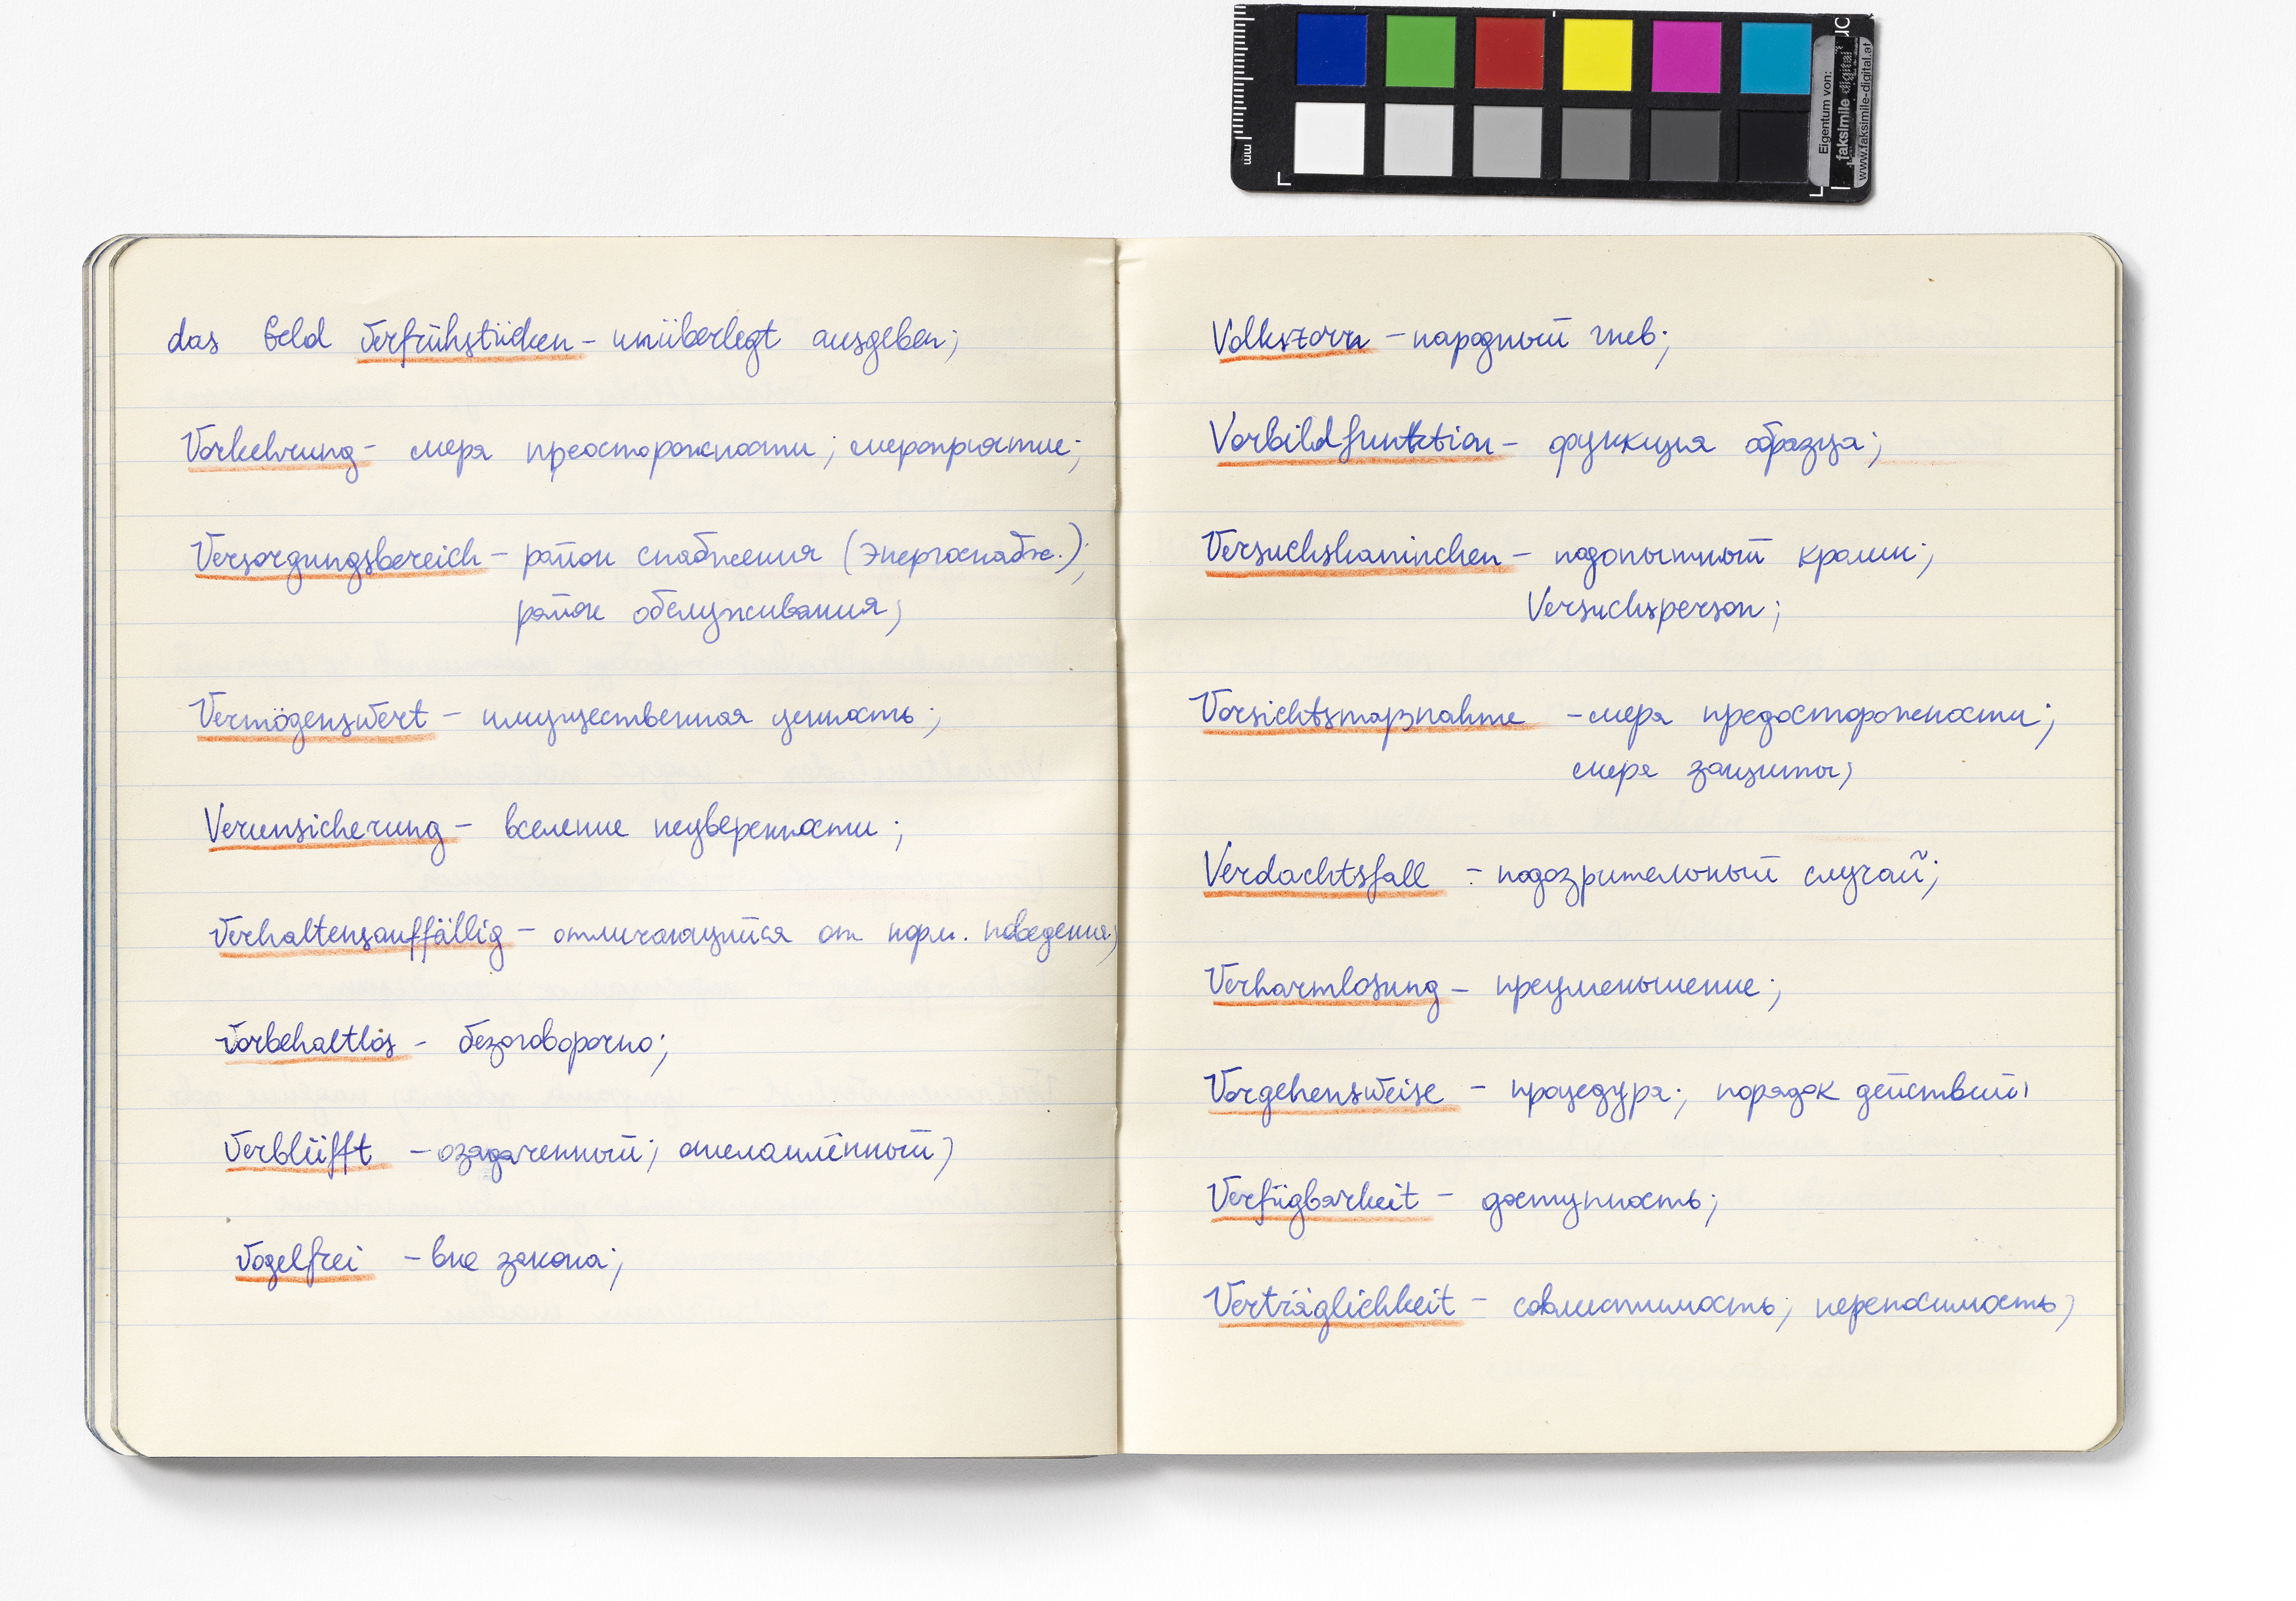 das Geld verfrühstücken – unüberlegt ausgeben;
Vorkehrung – мера преосторожности; мероприятие;
Versorgungsbereich – район снабжения (энергоснабж.);
район обслуживания;
Vermögenswert – имущественная ценность;
Verunsicherung – вселение неуверенности;
verhaltensauffällig – отличающийся от норм. поведения;
vorbehaltlos – безоговорочно;
verblüfft – озадаченный; ошеломлённый;
vogelfrei – вне закона;
Volkszorn – народный гнев;
Vorbildfunktion – функция образца;
Versuchskaninchen – подопытный кролик;
Versuchsperson;
Vorsichtsmaßnahme – мера предосторожности;
мера защиты;
Verdachtsfall – подозрительный случай;
Verharmlosung – преуменьшение;
Vorgehensweise – процедура; порядок действий;
Verfügbarkeit – доступность;
Verträglichkeit – совместимость; переносимость;
mm
Eigentum von:
faksimile digital
www.faksimile-digital.at